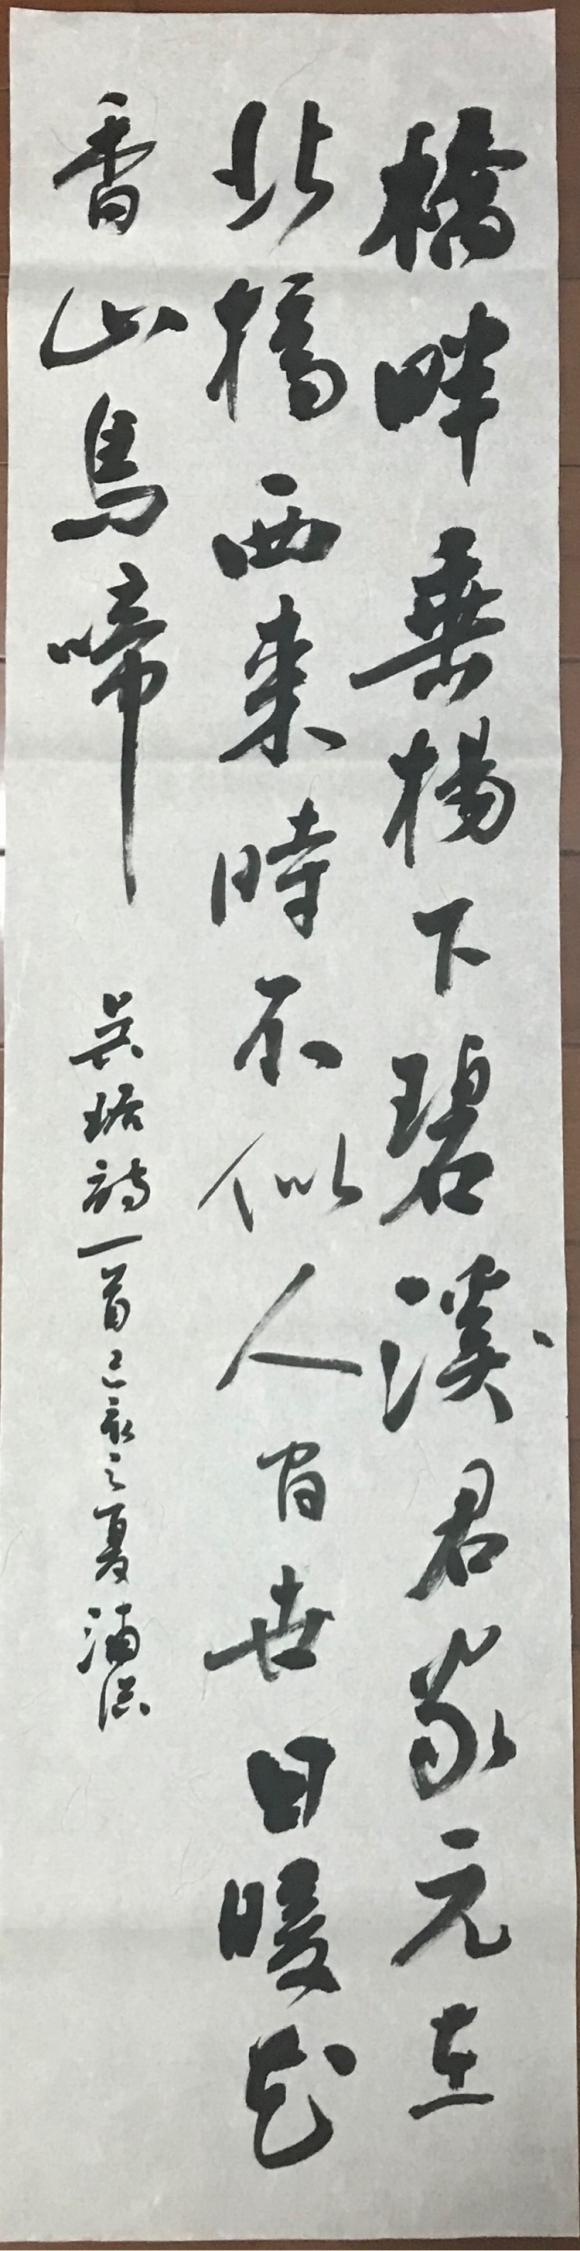 橋畔垂楊下碧溪君家元在
北橋西来時不似人间世日暖花
香山鳥啼
吴琚詩一首己亥之夏